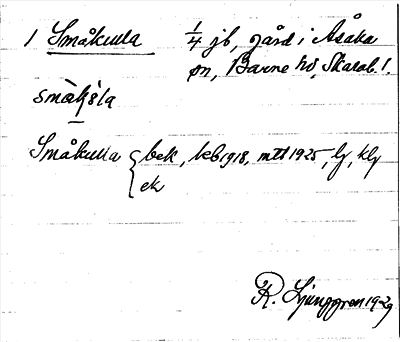 1 Småkulla 1/4 jb, gård i Åsaka
sn, Barne hd, Skarab. l.
Småkulla { bek, keb 1918, mtl 1925, lj, klj
ek
R. Ljunggren 1929